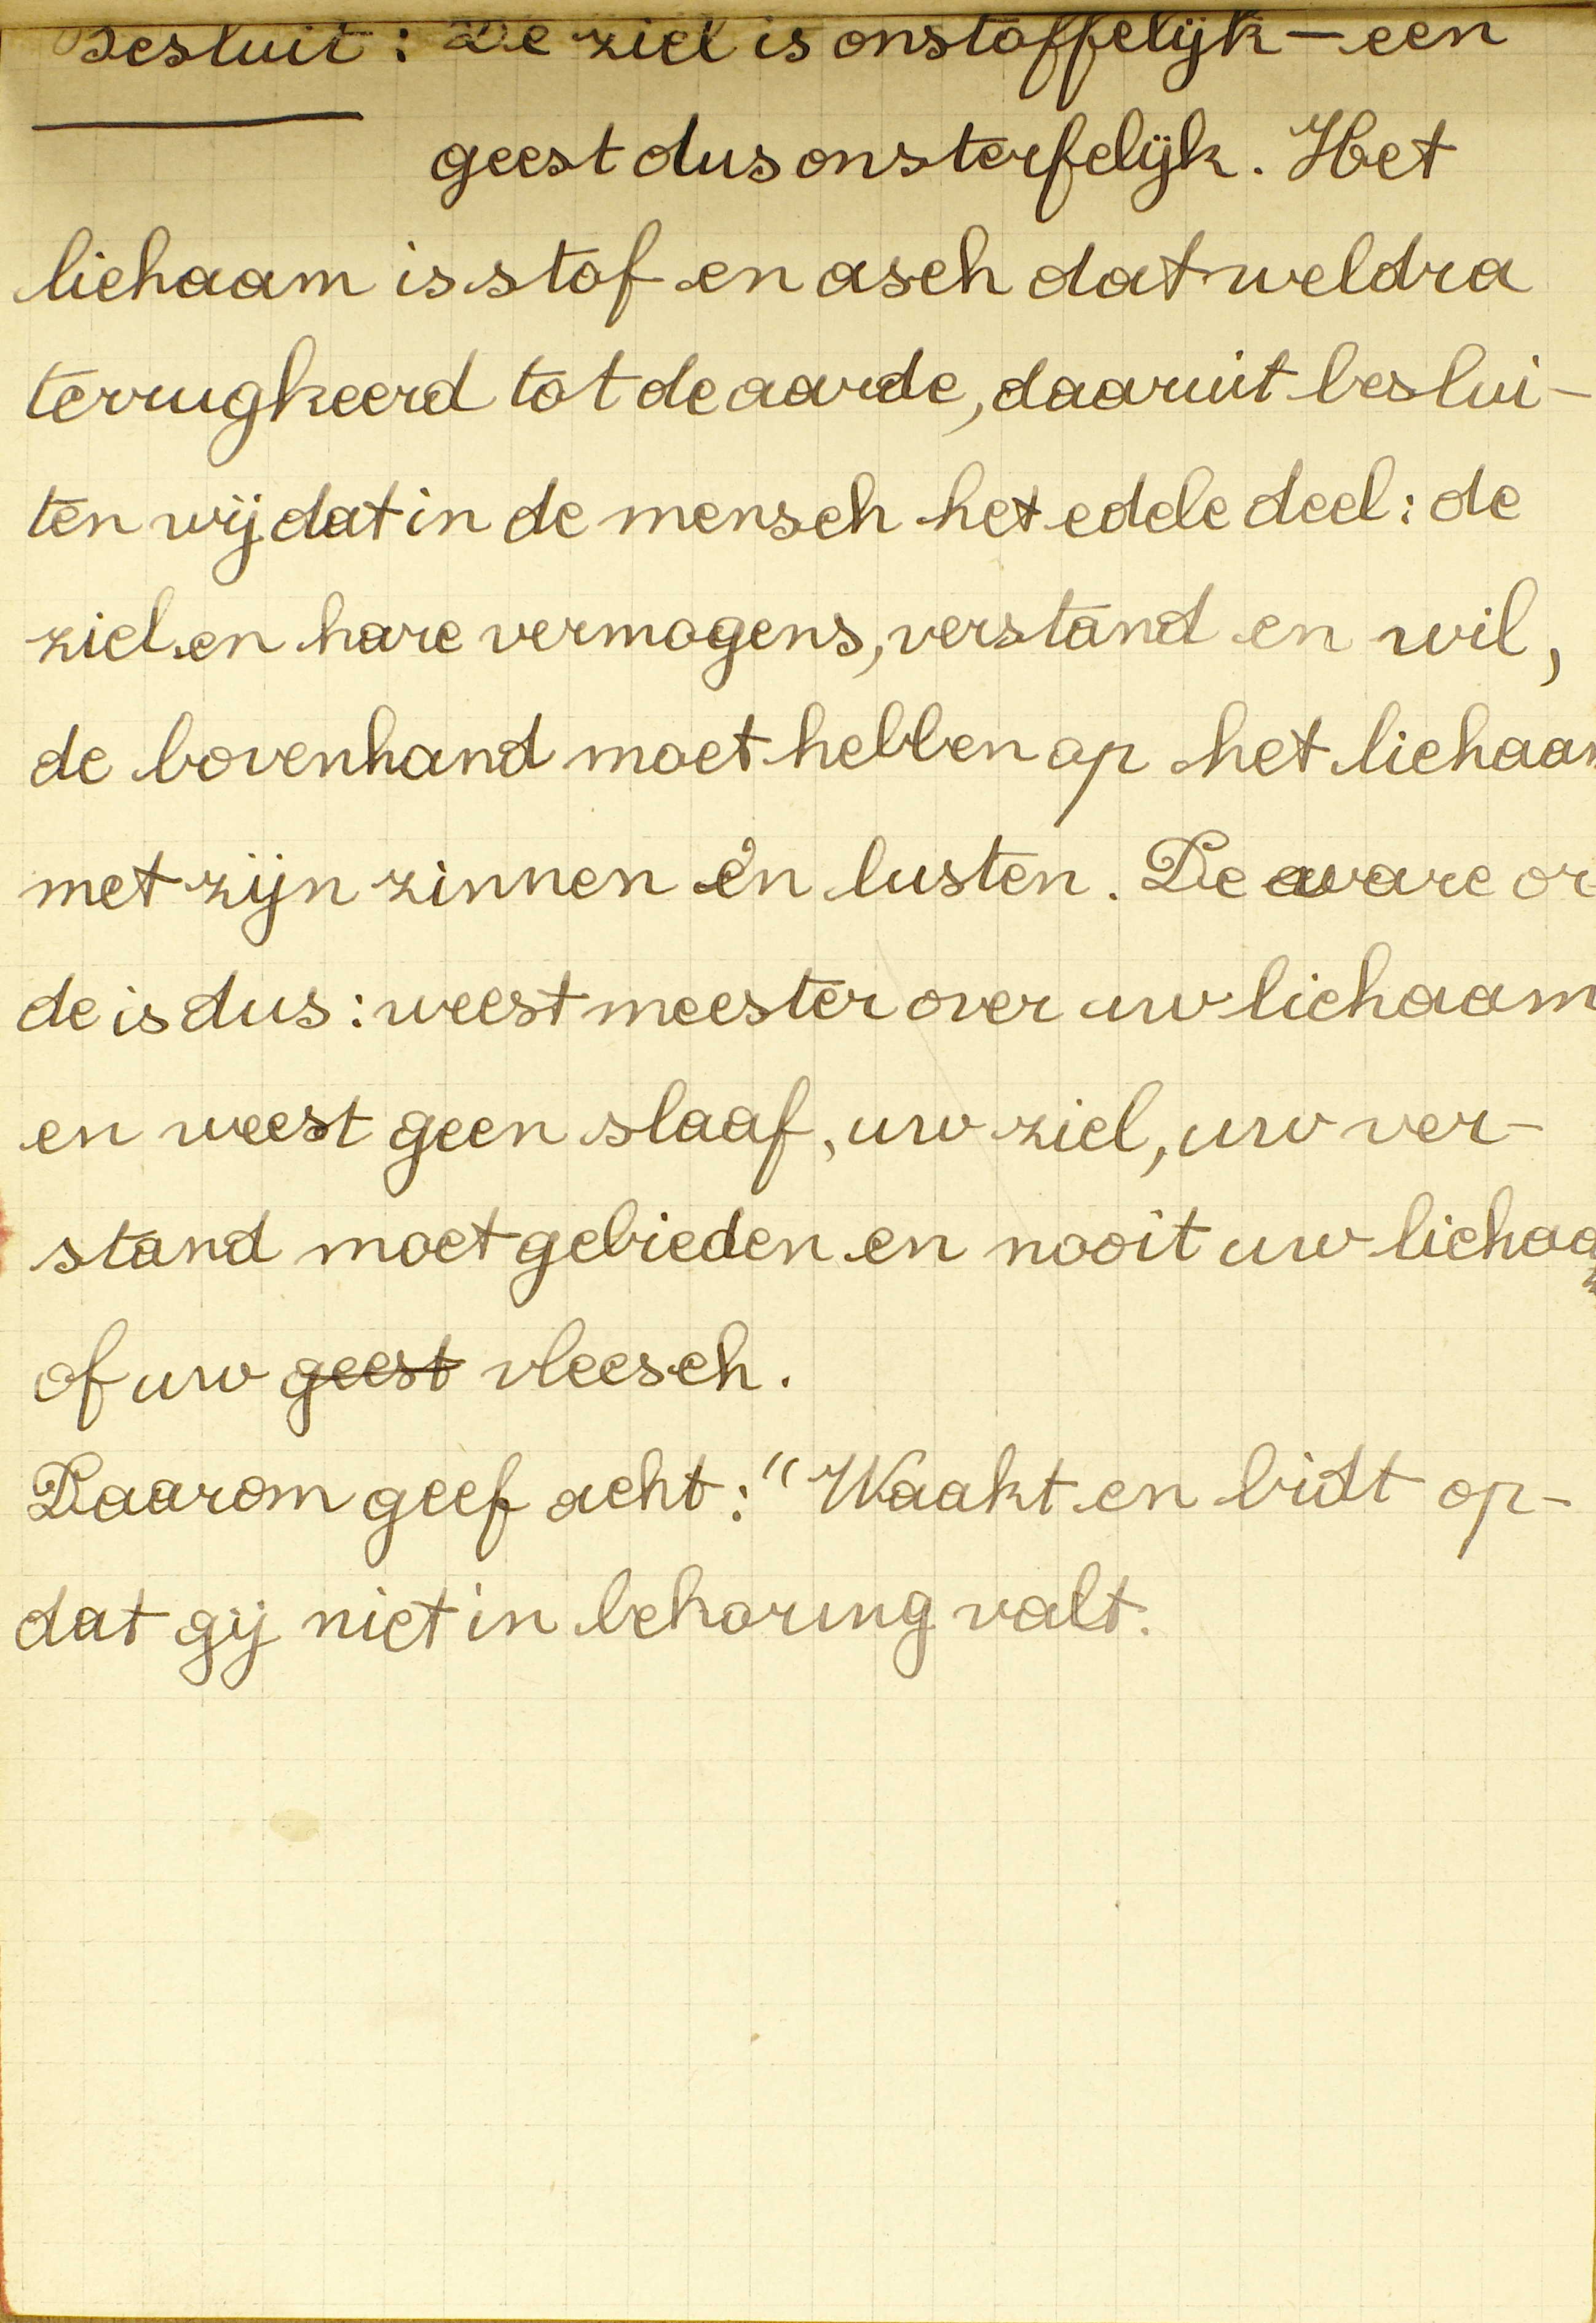 Besluit : De ziel is onstoffelijk – een
geest dus onsterfelijk. Het
lichaam is stof en asch dat weldra
terrugkeerd tot de aarde, daaruit beslui-
ten wij dat in de mensch het edele deel : de
ziel en hare vermogens, verstand en wil,
de bovenhand moet hebben op het lichaam
met zijn zinnen en lusten. De ware or-
de is dus : weest meester over uw lichaam
en weest geen slaaf, uw ziel, uw ver-
stand moet gebieden en nooit uw lichaam
of uw geest vleesch.
Daarom geef acht : “Waakt en bidt op-
dat gij niet in bekoring valt.